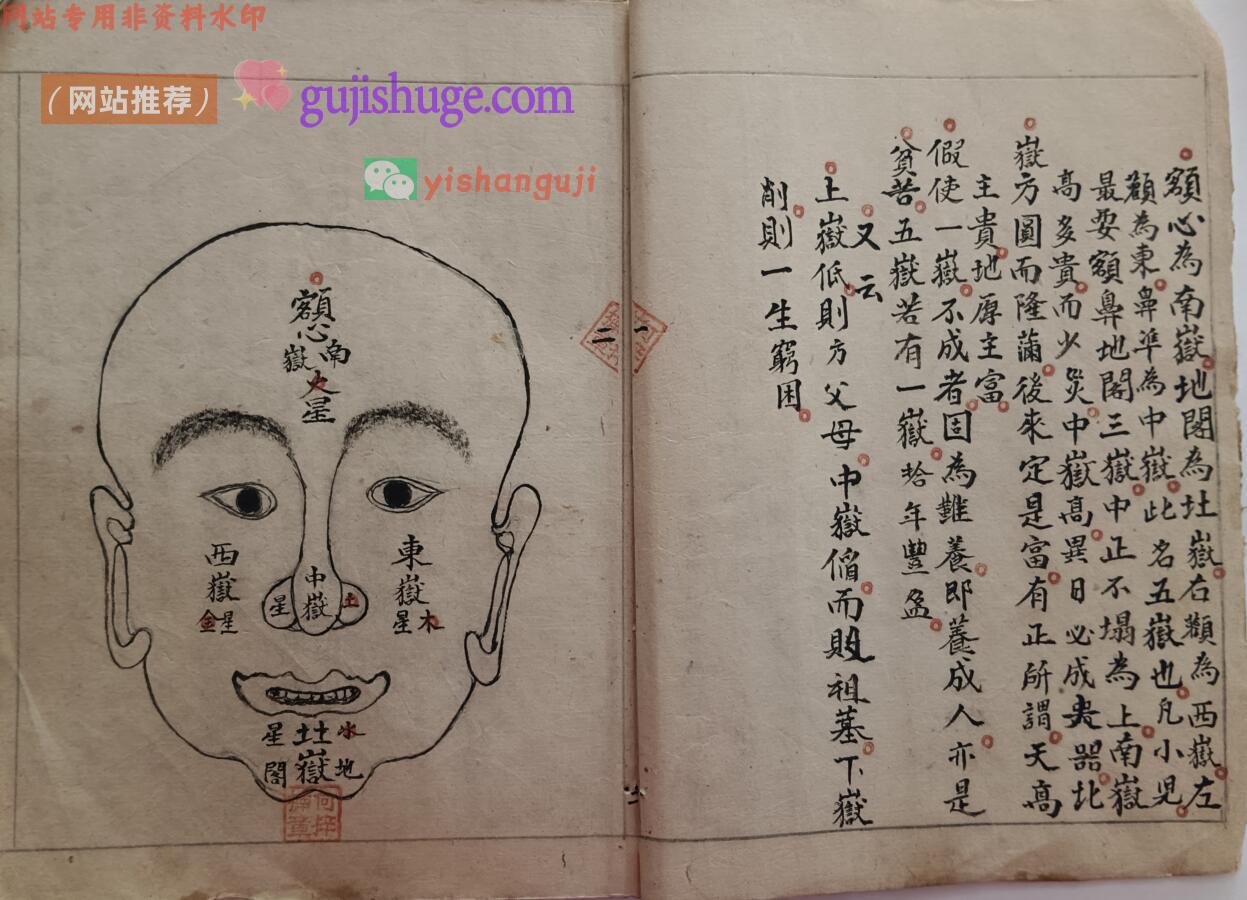 网站专用非资料水印
（网站推荐）
gujishuge.com
yishanguji
額心為南嶽地閣為北嶽右顴為西嶽左
顴為東鼻準為中嶽此名五嶽也凡小児
最要額鼻地閣三嶽中正不塌為上南嶽
高多貴而少災中嶽高異日必成大器北
嶽方圓而隆滿後來定是富有正所謂天高
主貴地厚主富
假使一嶽不成者固為難養即養成人亦是
貧苦五嶽若有一嶽拾年豐盈
又云
上嶽低則方父母中嶽偏而敗祖墓下嶽
削則一生窮困
一
二
額心
南嶽
火星
東嶽
木星
中嶽
土星
西嶽
金星
水星
北嶽
地閣